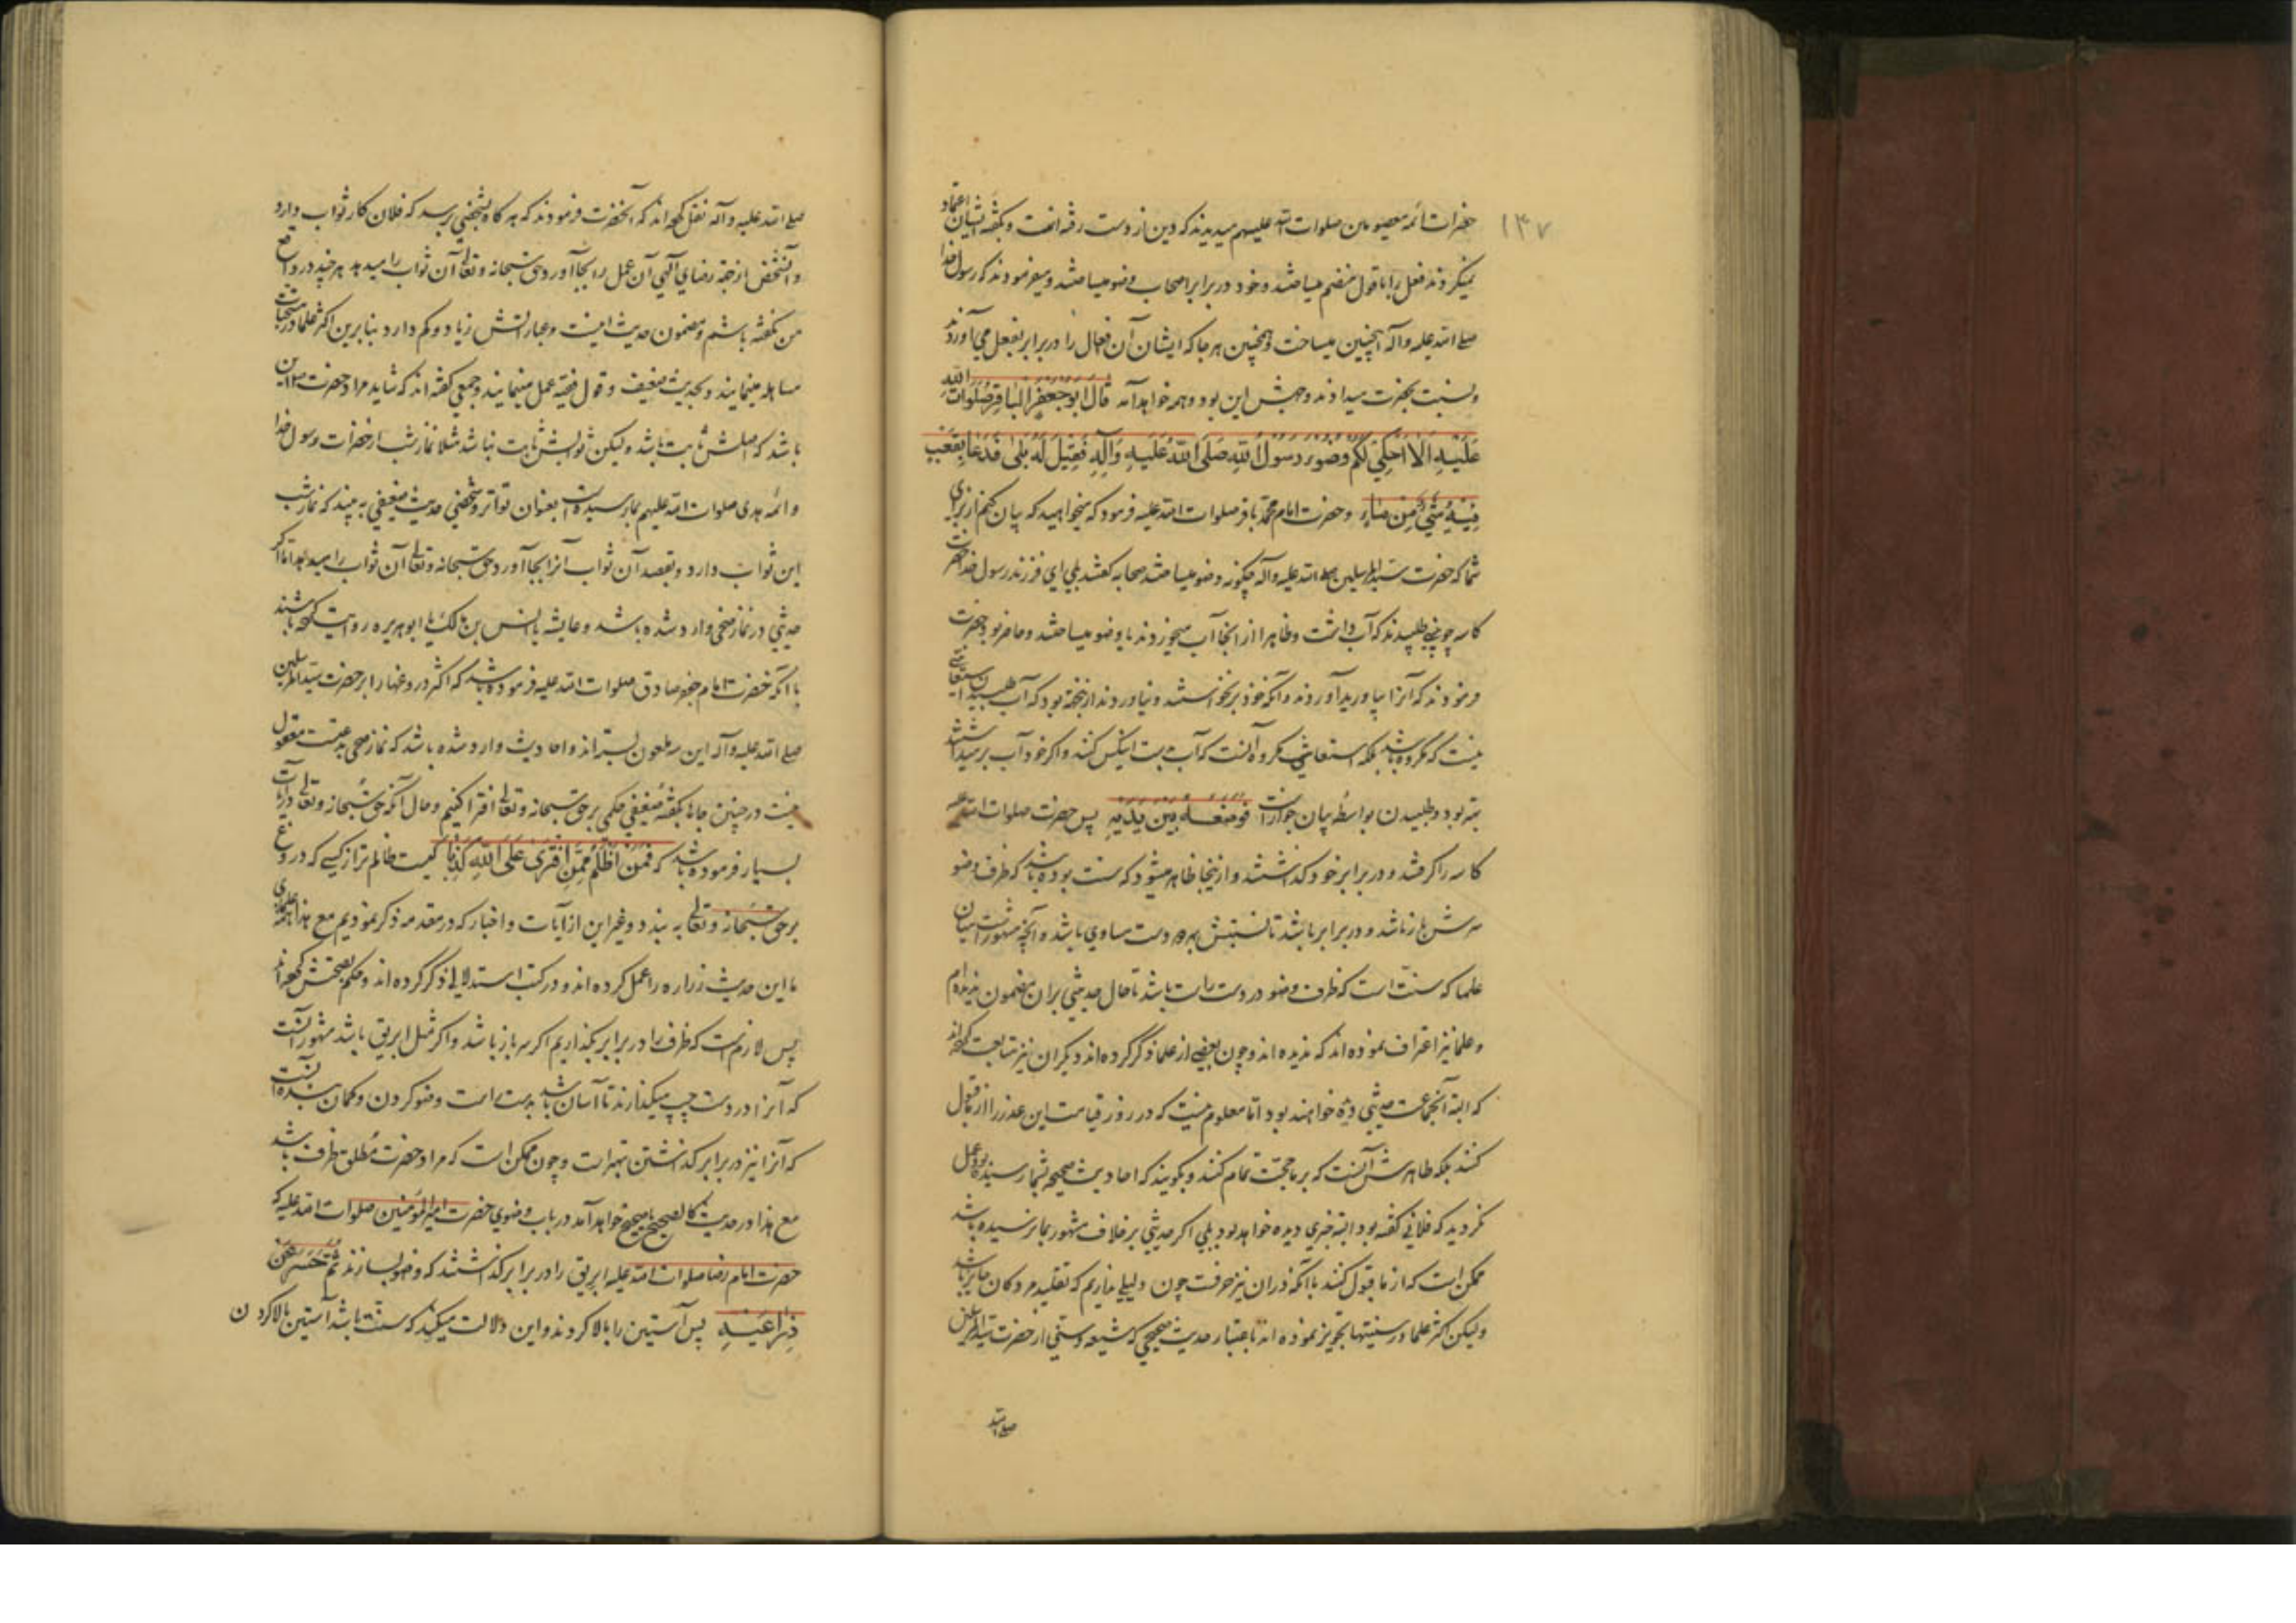 ۱۳۷
حضرات ائمه معصومین صلوات الله علیهم میدیدند که دین از دست رفته است و بگفته ایشان اعتماد
نمیکردند فعل را با قول منضم میساختند و خود در برابر اصحاب وضو میساختند و میفرمودند که رسول خدا
صلی الله علیه و آله اینچنین میساخت و همچنین هر جا که ایشان آن افعال را در برابر بفعل می آوردند
و نسبت بحضرت میدادند وجهش این بود و همه خواهد آمد قال ابو جعفر الباقر صلوات الله
علیه الا احکی لکم وضوء رسول الله صلی الله علیه و آله فقیل له بلی فدعا بقعب
فیه شیء من ماء و حضرت امام محمد باقر صلوات الله علیه فرمود که میخواهید که بیان کنم از برای
شما که حضرت سید المرسلین صلی الله علیه و آله چگونه وضو میساختند صحابه گفتند بلی ای فرزند رسول خدا حضرت
کاسه چوبینی طلبیدند که آب داشت و ظاهرا از آنجا آب میخوردند یا وضو میساختند و حاضر بود حضرت
فرمودند که آنرا بیاورید آوردند و آنکه خود برنخواستند و نیاوردند از نجهة بود که آب طلبیدن استعانتی
نیست که مکروه باشد بلکه استعانتی مکروه آنست که آب بدست اینکس کنند و اگر خود آب بر میداشتند
بهتر بود و طلبیدن بواسطه بیان جوازست فوضعه بین یدیه پس حضرت صلوات الله علیه
کاسه را گرفتند و در برابر خود گذاشتند و ازینجا ظاهر میشود که سنت بوده باشد که ظرف وضو
سرش باز باشد و در برابر باشد تا نسبتش بهر دو دست مساوی باشد و آنچه مشهورست میان
علما که سنت است که ظرف وضو در دست راست باشد تا حال حدیثی بران مضمون ندیده ام
و علما نیز اعتراف نموده اند که ندیده اند و چون بعضی از علما ذکر کرده اند دیگران نیز متابعت کرده اند
که البته آنجماعت حدیثی دیده خواهند بود اما معلوم نیست که در روز قیامت این عذر را از ما قبول
کنند بلکه ظاهرش آنست که بر ما حجت تمام کنند و بگویند که احادیث صحیحه بشما رسیده بود عمل
نکردید که فلانی گفته بود البته خبری دیده خواهد بود بلی اگر حدیثی بر خلاف مشهور بما نرسیده باشد
ممکن است که از ما قبول کنند با آنکه در ان نیز حرفست چون دلیلی نداریم که تقلید مردگان جایز باشد
و لیکن اکثر علما در سنتیها تجویز نموده اند باعتبار حدیث صحیحی که شیعه و سنی از حضرت سید المرسلین
صلی الله
صلی الله علیه و آله نقل کرده اند که آنحضرت فرمودند که هر گاه بشخصی رسد که فلان کار ثواب دارد
و آنشخص از جهة رضای الهی آن عمل را بجا آورد حق سبحانه و تعالی آن ثواب را میدهد هر چند در واقع
من نگفته باشم و مضمون حدیث اینست و عباراتش زیاد و کم دارد بنابرین اکثر علما در مستحبات
مساهله مینمایند و بحدیث ضعیف و قول فقیه عمل مینمایند و جمعی گفته اند که شاید مراد حضرت این
باشد که اصلش ثابت باشد و لیکن ثوابش ثابت نباشد مثلا نماز شب از حضرات رسول خدا
و ائمه هدی صلوات الله علیهم بما رسیده است بعنوان تواتر و شخصی حدیث ضعیفی به بیند که نماز شب
این ثواب دارد و بقصد آن ثواب آنرا بجا آورد حق سبحانه و تعالی آن ثواب را میدهد اما اگر
حدیثی در نماز ضحی وارد شده باشد و عایشه یا انس بن مالک یا ابو هریره روایت کرده باشند
با آنکه حضرت امام جعفر صادق صلوات الله علیه فرموده باشد که اکثر دروغها را بر حضرت سید المرسلین
صلی الله علیه و آله این سه ملعون بسته اند و احادیث وارد شده باشد که نماز ضحی بدعتست معقول
نیست در چنین جاها بگفته ضعیفی حکمی بر حق سبحانه و تعالی افترا کنیم و حال آنکه حق سبحانه و تعالی در آیات
بسیار فرموده باشد که فمن اظلم ممن افتری علی الله کذبا کیست ظالم تر از کسی که دروغ
بر حق سبحانه و تعالی به بندد و غیر این از آیات و اخبار که در مقدمه ذکر نمودیم مع هذا همه علمای
ما این حدیث زراره را عمل کرده اند و در کتب استدلالی ذکر کرده اند و حکم بصحتش کرده اند
پس لازمست که ظرف را در برابر بگذاریم اگر سر باز باشد و اگر مثل ابریق باشد مشهور آنست
که آنرا در دست چپ میگذارند تا آسان باشد بدست راست وضو کردن و گمان بنده آنست
که آنرا نیز در برابر گذاشتن بهترست و چون ممکن است که مراد حضرت مطلق ظرف باشد
مع هذا در حدیث کالصحیح یا صحیح خواهد آمد در باب وضوی حضرت امیر المؤمنین صلوات الله علیه که
حضرت امام رضا صلوات الله علیه ابریق را در برابر گذاشتند که وضو بسازند ثم حسر عن
ذراعیه پس آستین را بالا کردند و این دلالت میکند که سنت باشد آستین بالا کردن